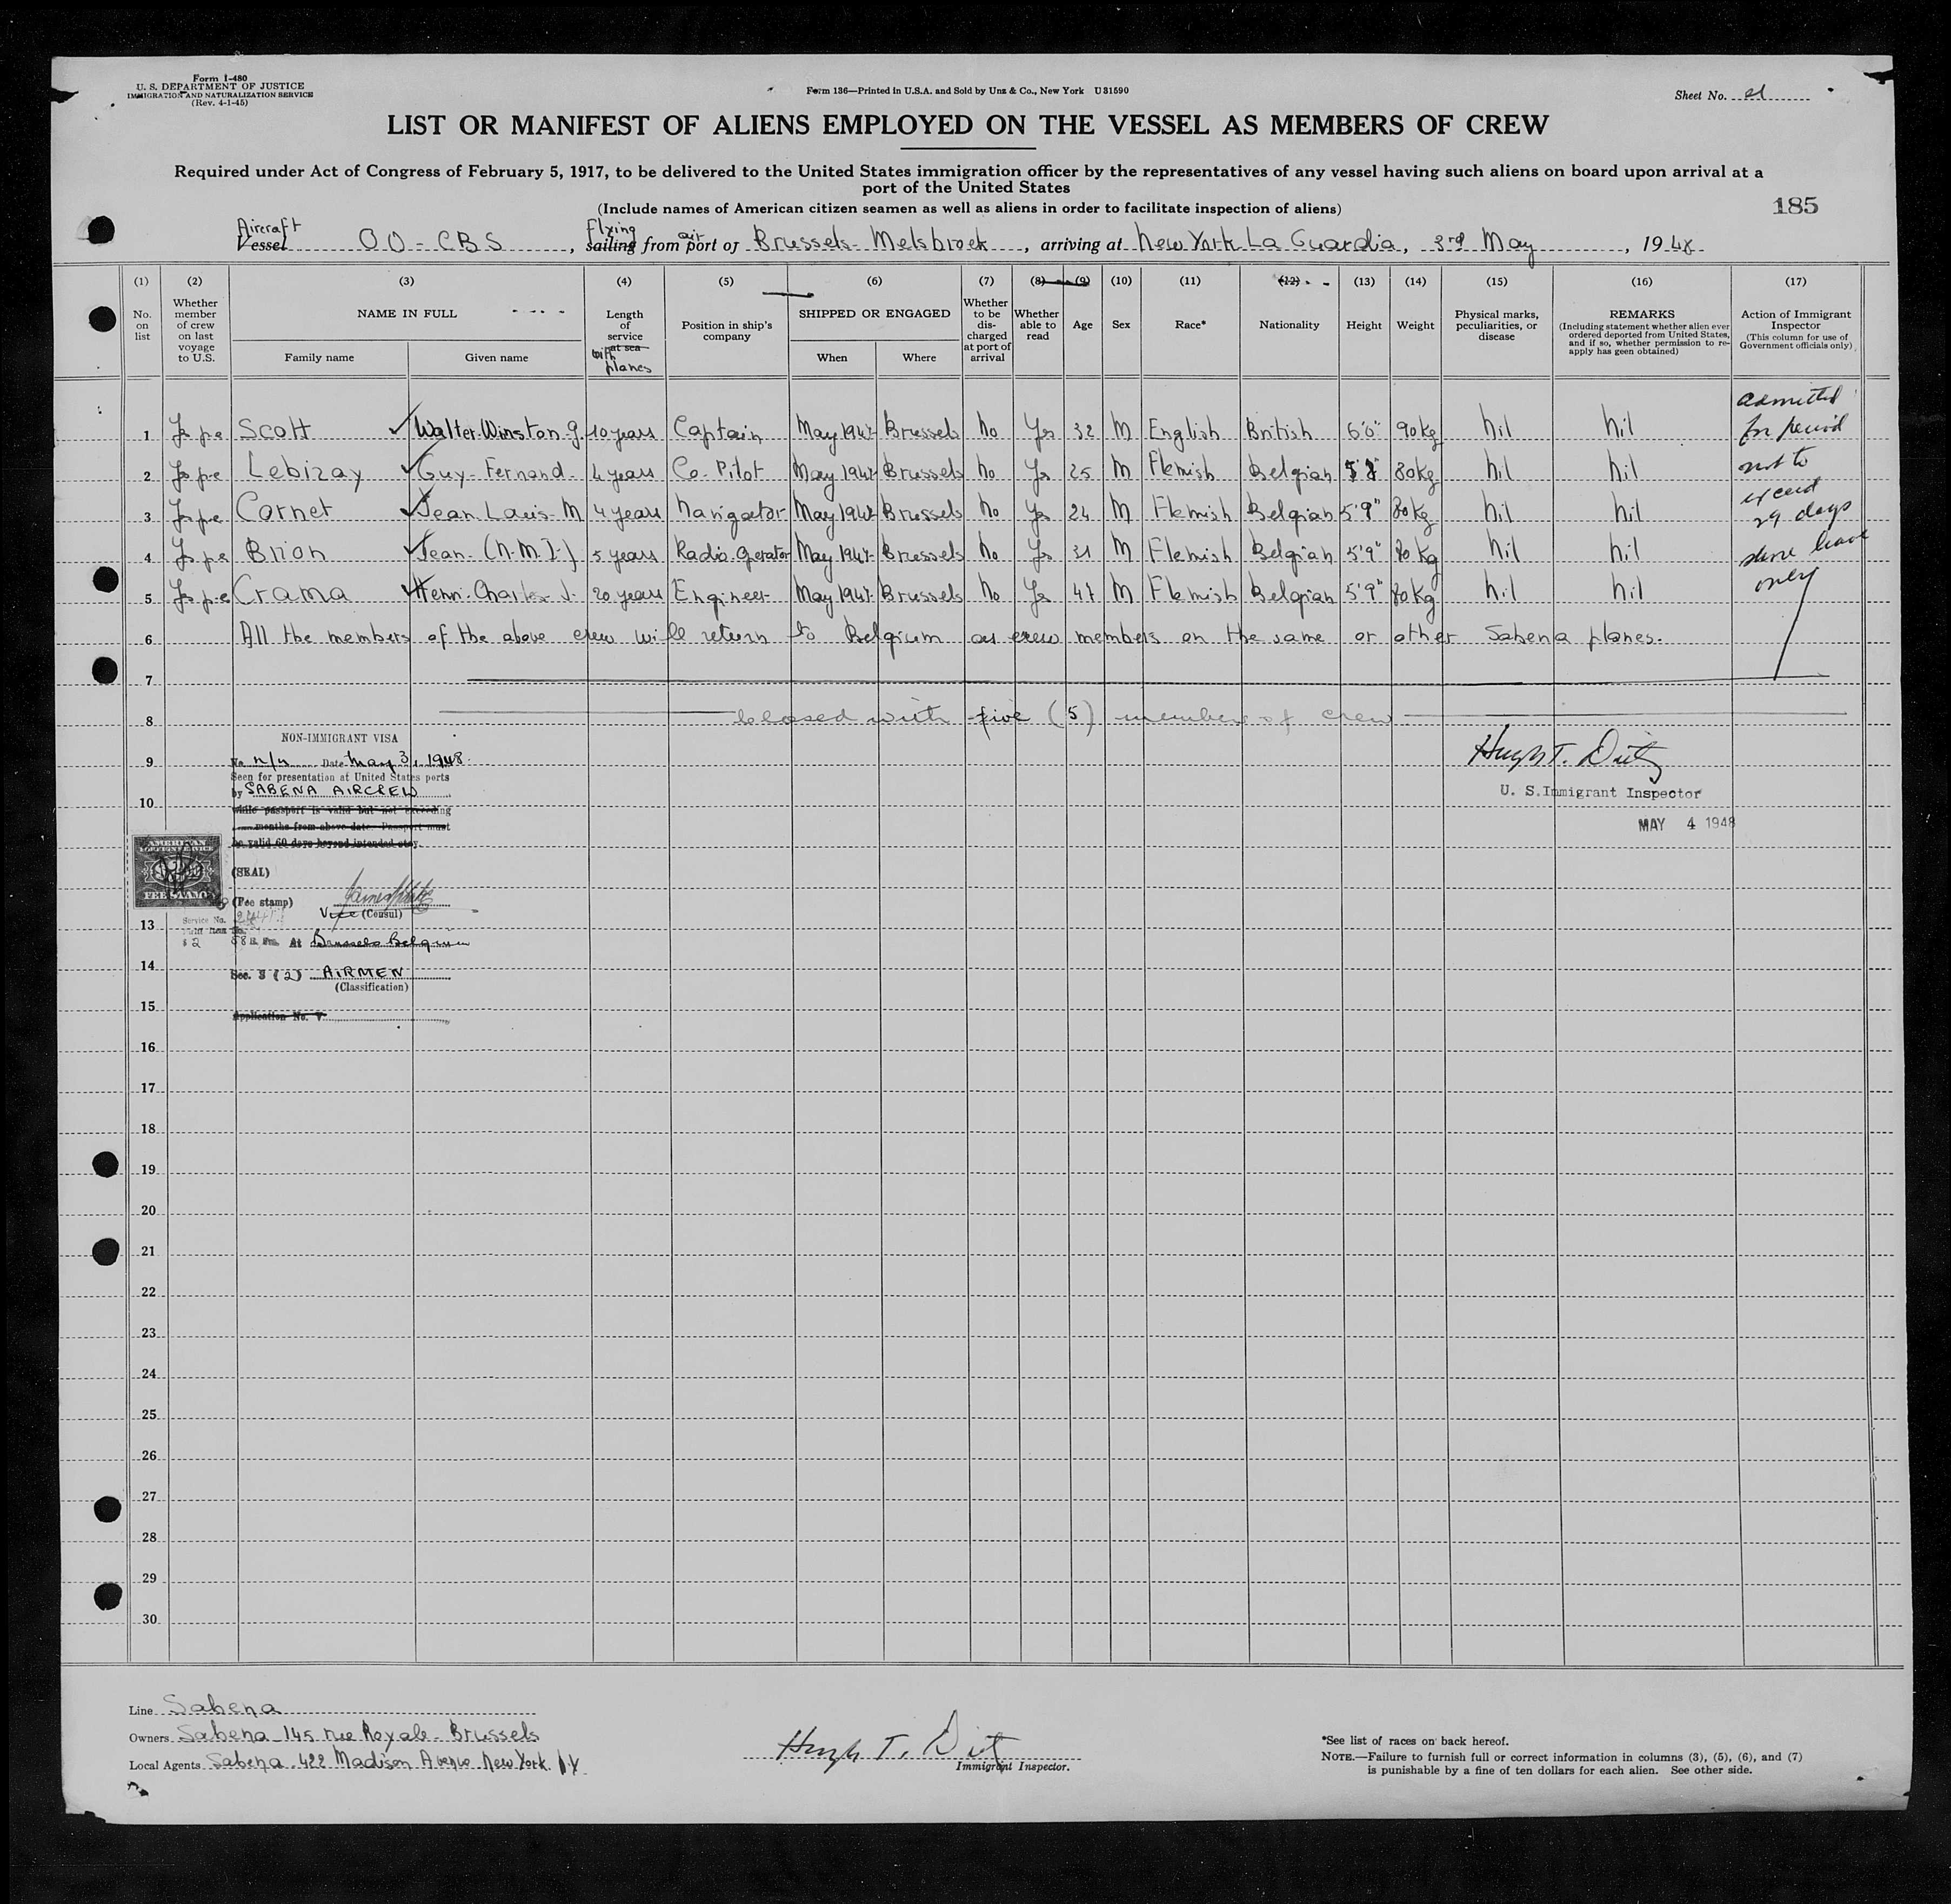 Form I-480
U. S. DEPARTMENT OF JUSTICE
IMMIGRATION AND NATURALIZATION SERVICE
(Rev. 4-1-45)
Form 136—Printed in U.S.A. and Sold by Unz & Co., New York U31590
Sheet No.
LIST OR MANIFEST OF ALIENS EMPLOYED ON THE VESSEL AS MEMBERS OF CREW
Required under Act of Congress of February 5, 1917, to be delivered to the United States immigration officer by the representatives of any vessel having such aliens on board upon arrival at a
port of the United States
(Include names of American citizen seamen as well as aliens in order to facilitate inspection of aliens)
185
Aircraft Flying air
Vessel OO-CBS, sailing from port of Brussels-Melsbroek, arriving at New York La Guardia, 3rd May, 1948
(1) (2) (3) (4) (5) (6) (7) (8) (9) (10) (11) (12) (13) (14) (15) (16) (17)
No. on list
Whether member of crew on last voyage to U.S.
NAME IN FULL
Family name
Given name
Length of service at sea with planes
Position in ship's company
SHIPPED OR ENGAGED
When
Where
Whether to be discharged at port of arrival
Whether able to read
Age
Sex
Race*
Nationality
Height
Weight
Physical marks, peculiarities, or disease
REMARKS
(Including statement whether alien ever ordered deported from United States, and if so, whether permission to re-apply has geen obtained)
Action of Immigrant Inspector
(This column for use of Government officials only)
1 Scott Walter Winston J. 10 years Captain May 1947 Brussels No Yes 32 M English British 6'0" 90kg nil nil
2 Lebizay Guy-Fernand 4 years Co-Pilot May 1947 Brussels No Yes 25 M Flemish Belgian 80kg nil nil
3 Cornet Jean Louis M 4 years Navigator May 1947 Brussels No Yes 24 M Flemish Belgian 5'9" 80kg nil nil
4 Brion Jean (N.M.I.) 5 years Radio-Operator May 1947 Brussels No Yes 31 M Flemish Belgian 5'9" 80kg nil nil
5 Crama Henri Charles J. 20 years Engineer May 1947 Brussels No Yes 47 M Flemish Belgian 5'9" 80kg nil nil
admitted
for period
not to
exceed
29 days
shore leave
only
6 All the members of the above crew will return to Belgium as crew members on the same or other Sabena planes.
7
8 closed with five (5) members of crew
NON-IMMIGRANT VISA
9 No. Date May 3, 1948
Seen for presentation at United States ports
10 by SABENA AIRCREW
while passport is valid but not exceeding
months from above date. Passport must
be valid 60 days beyond intended stay.
Hugh T. Dietz
U. S. Immigrant Inspector
MAY 4 1948
AMERICAN
FEE STAMP
(SEAL)
(Fee stamp)
Vice (Consul)
Service No.
13
Tariff Item No.
$ 2
At Brussels Belgium
14
Sec. 3 (2) AIRMEN
(Classification)
15
Application No. V
16
17
18
19
20
21
22
23
24
25
26
27
28
29
30
Line Sabena
Owners Sabena 145 rue Royale-Brussels
Local Agents Sabena 422 Madison Avenue New York N.Y.
Hugh T. Dietz
Immigrant Inspector.
*See list of races on back hereof.
NOTE.—Failure to furnish full or correct information in columns (3), (5), (6), and (7)
is punishable by a fine of ten dollars for each alien. See other side.